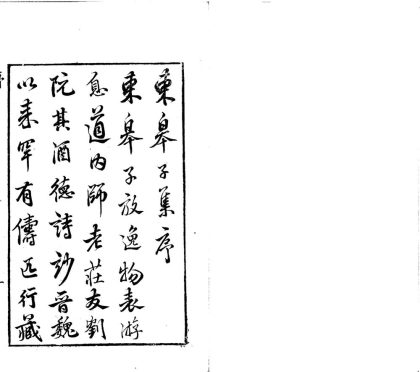 東皋子集序
東皋子放逸物表游
息道內師老莊友劉
阮其酒德詩妙晉魏
以來罕有儔匹行藏